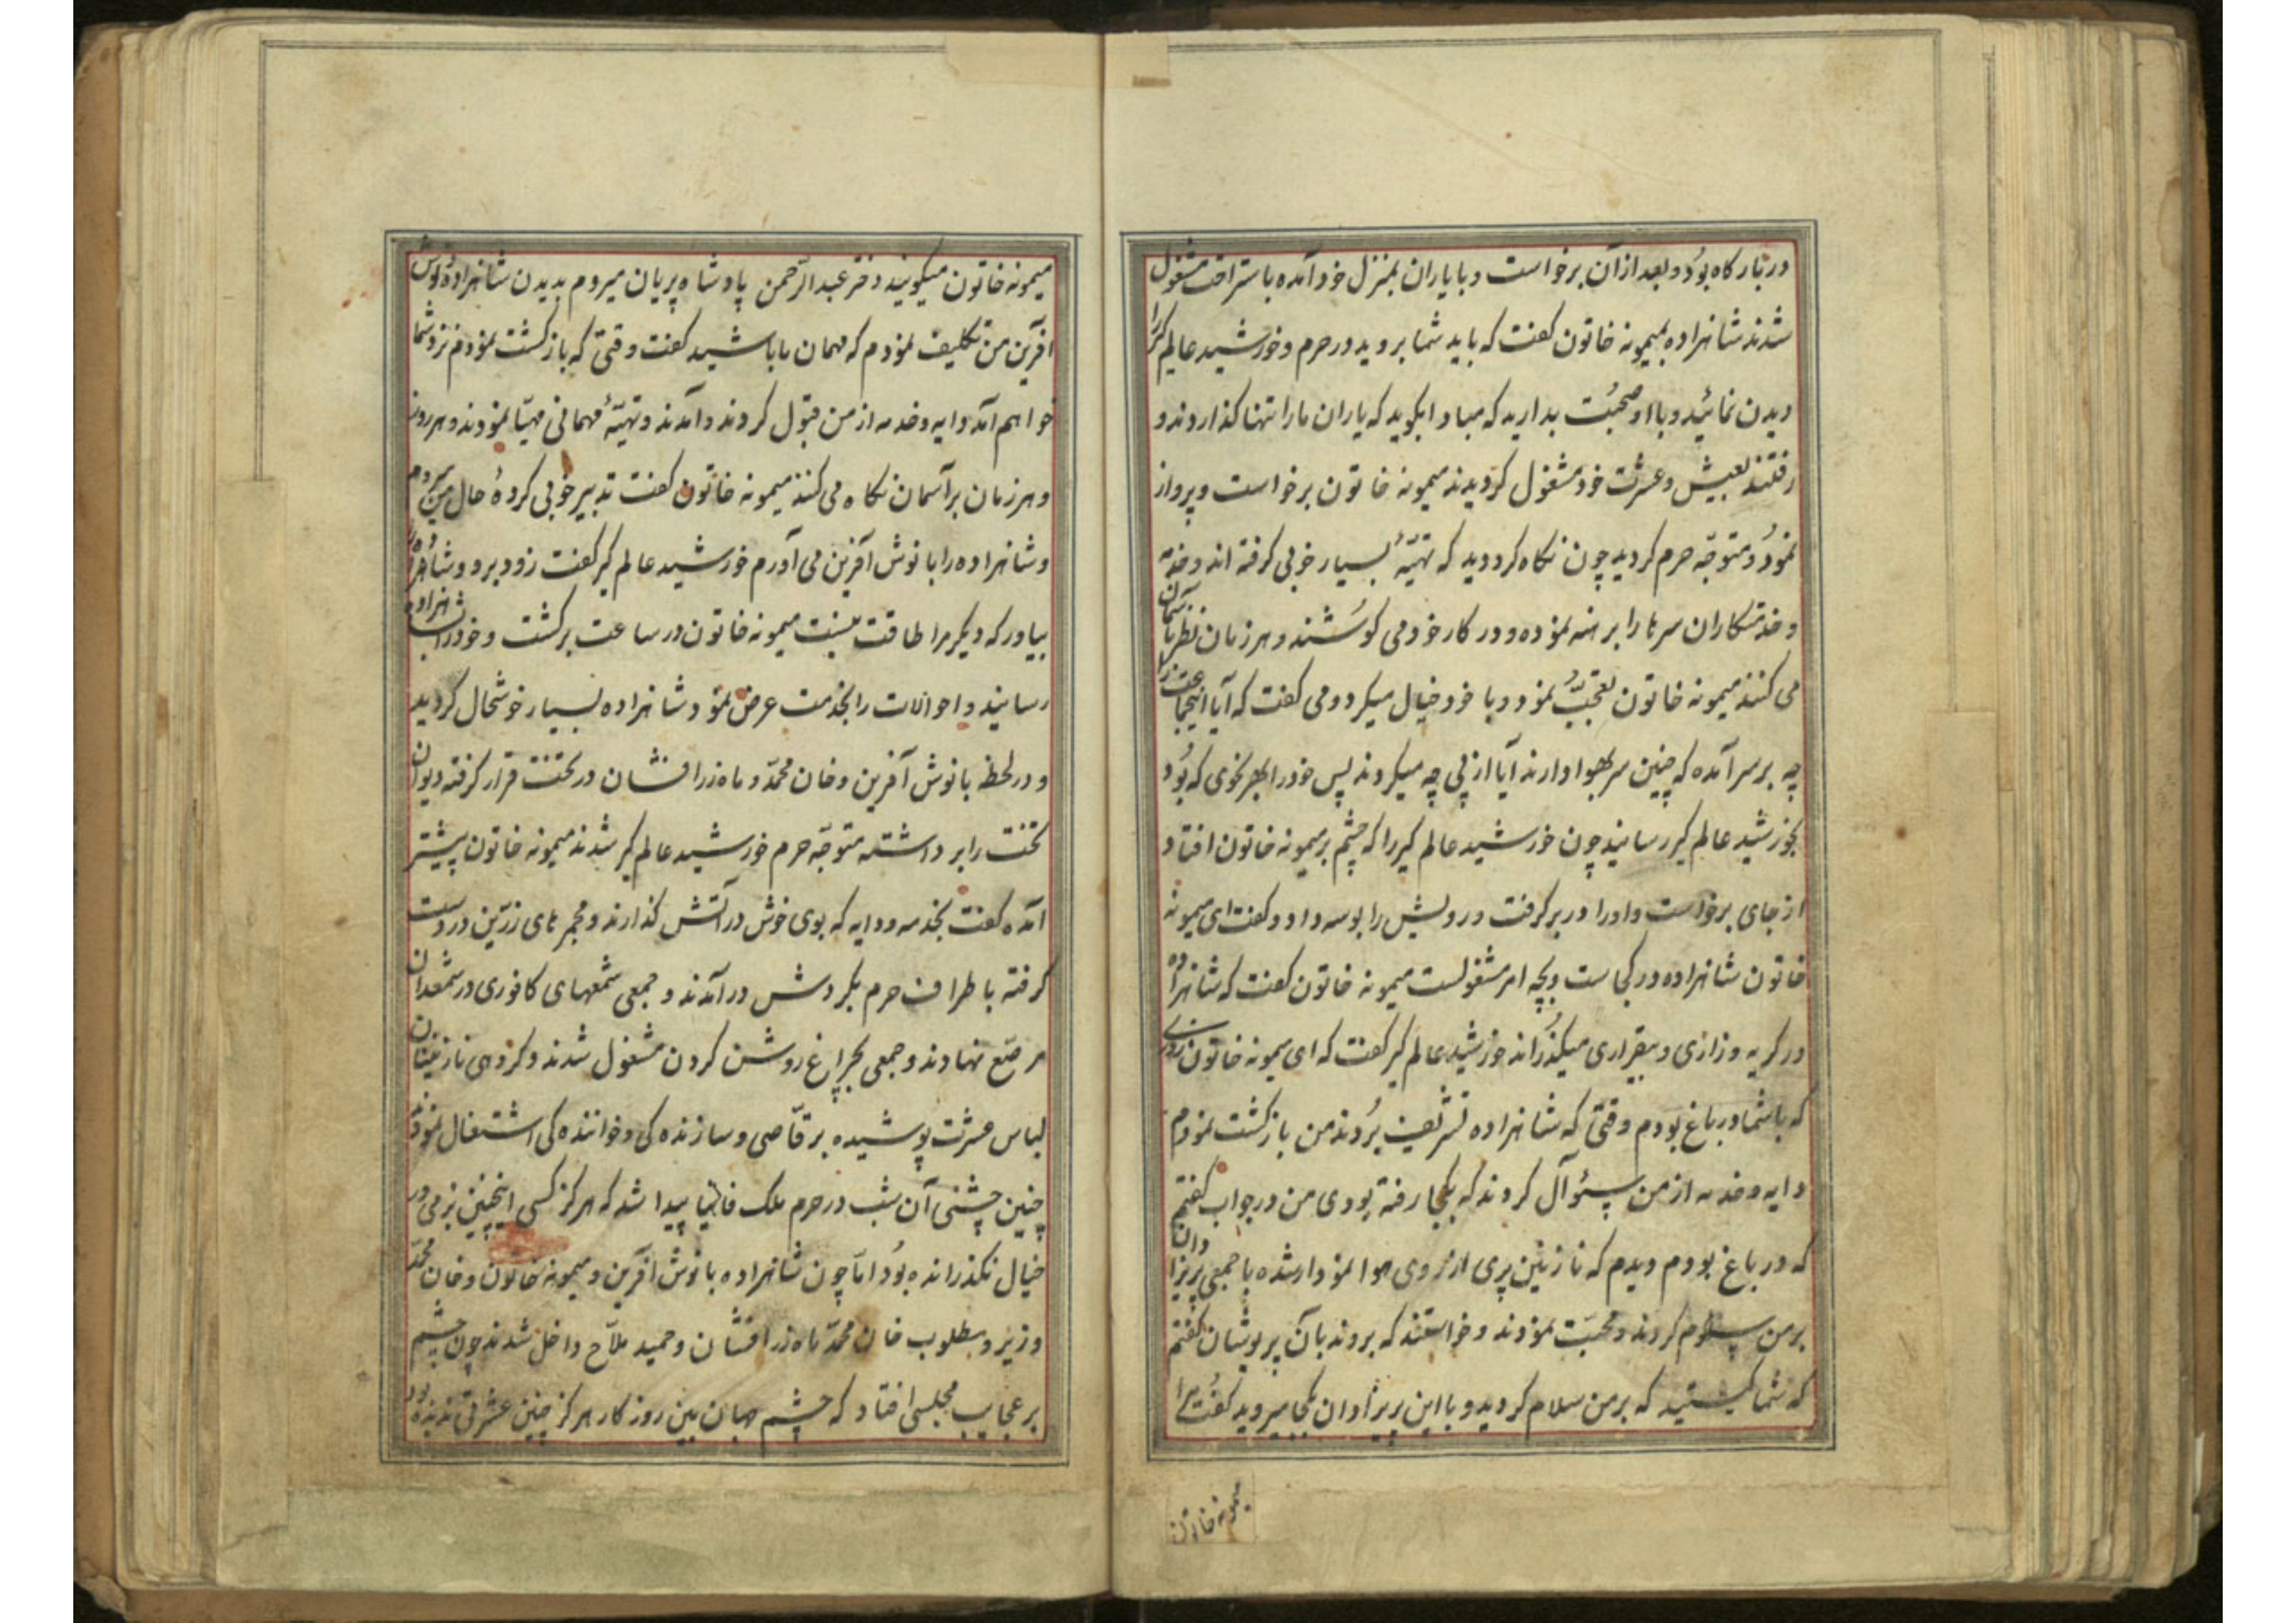 در بارگاه بود و بعد از آن برخواست و با یاران بمنزل خود آمده باستراحت مشغول
شدند شاهزاده بمیمونه خاتون گفت که باید شما بروید در حرم و خورشید عالم گیر را
دیدن نمائید و با او صحبت بدارید که مبادا بگوید که یاران ما را تنها گذاردند و
رفتند بعیش و عشرت خود مشغول گردیدند میمونه خاتون برخواست و پرواز
نمود و متوجّه حرم گردید چون نگاه کرد دید که تهیّهٔ بسیار خوبی گرفته اند و خدمه
و خدمتکاران سرها را برهنه نموده و در کار خود می کوشند و هر زمان نظر بآسمان
می کنند میمونه خاتون تعجّب نمود و با خود خیال میکرد و می گفت که آیا اینجماعت را
چه بر سر آمده که چنین سر بهوا دارند آیا از پی چه میکردند پس خود را بهر نحوی که بود
بخورشید عالم گیر رسانید چون خورشید عالم گیر را که چشم بر میمونه خاتون افتاد
از جای برخواست و او را در بر گرفت و رویش را بوسه داد و گفت ای میمونه
خاتون شاهزاده در کجاست و بچه امر مشغولست میمونه خاتون گفت که شاهزاده
در گریه و زاری و بیقراری میگذراند خورشید عالم گیر گفت که ای میمونه خاتون روزی
که با شما در باغ بودم وقتی که شاهزاده تشریف بردند من بازگشت نمودم
دایه و خدمه از من سئوآل کردند که بکجا رفته بودی من در جواب گفتم
که در باغ بودم دیدم که نازنین پری از روی هوا نمودار شده با جمعی پریزادان
بر من سلام کردند و محبّت نمودند و خواستند که بروند بآن پریوشان گفتم
که شما کیستید که بر من سلام کردید و با این پریزادان بکجا میروید گفت مرا
میمونه خاتون
میمونه خاتون میگویند دختر عبدالرّحمن پادشاه پریان میروم بدیدن شاهزاده نوش
آفرین من تکلیف نمودم که مهمان ما باشید گفت وقتی که بازگشت نمودم نزد شما
خواهم آمد دایه و خدمه از من قبول کردند و آمدند و تهیّهٔ مهمانی مهیّا نمودند و هر روز
و هر زمان بر آسمان نگاه می کنند میمونه خاتون گفت تدبیر خوبی کردهٔ حال من میروم
و شاهزاده را با نوش آفرین می آورم خورشید عالم گیر گفت زود برو و شاهزاده را
بیاور که دیگر مرا طاقت نیست میمونه خاتون در ساعت برگشت و خود را بشاهزاده
رسانید و احوالات را بخدمت عرض نمود شاهزاده بسیار خوشحال گردید
و در لحظه با نوش آفرین و خان محمّد و ماه زرافشان در تخت قرار گرفته دیوان
تخت را برداشته متوجّه حرم خورشید عالم گیر شدند میمونه خاتون پیشتر
آمده گفت بخدمه و دایه که بوی خوش در آتش گذارند و مجمرهای زرّین در دست
گرفته باطراف حرم بگردش درآمدند و جمعی شمعهای کافوری در شمعدان
مرصّع نهادند و جمعی بچراغ روشن کردن مشغول شدند و گروهی نازنینان
لباس عشرت پوشیده برقّاصی و سازنده گی و خواننده گی اشتغال نمودند
چنین جشنی آن شب در حرم ملک پیدا شد که هرگز کسی اینچنین بزمی در
خیال نگذرانده بود امّا چون شاهزاده با نوش آفرین و میمونه خاتون و خان محمّد
وزیر و مطلوب خان محمّد ماه زرافشان و حمید ملاّح داخل شدند چون چشم
بر عجایب مجلسی افتاد که چشم جهان بین روزگار هرگز چنین عشرتی ندیده بود